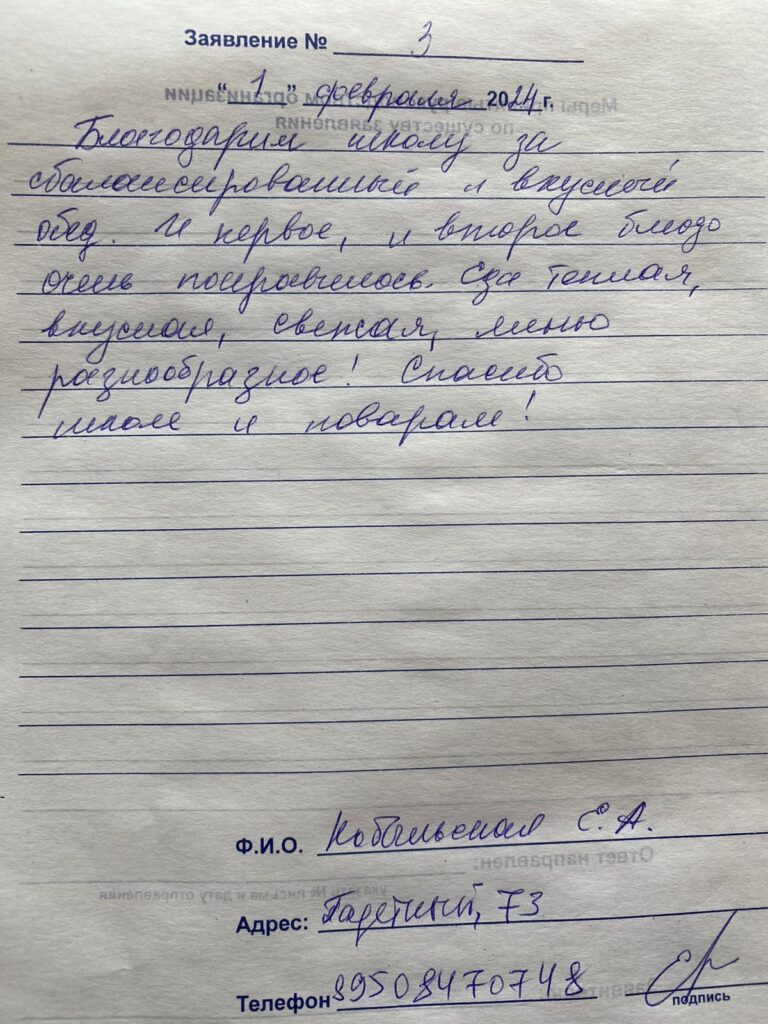 Заявление № 3
"1" февраля 2024 г.
Благодарим школу за
сбалансированный и вкусный
обед. И первое, и второе блюдо
очень понравилось. Еда теплая,
вкусная, свежая, меню
разнообразное! Спасибо
школе и поварам!
Ф.И.О. Кобыльская Е.А.
Адрес: 73
Телефон 89508470748
подпись